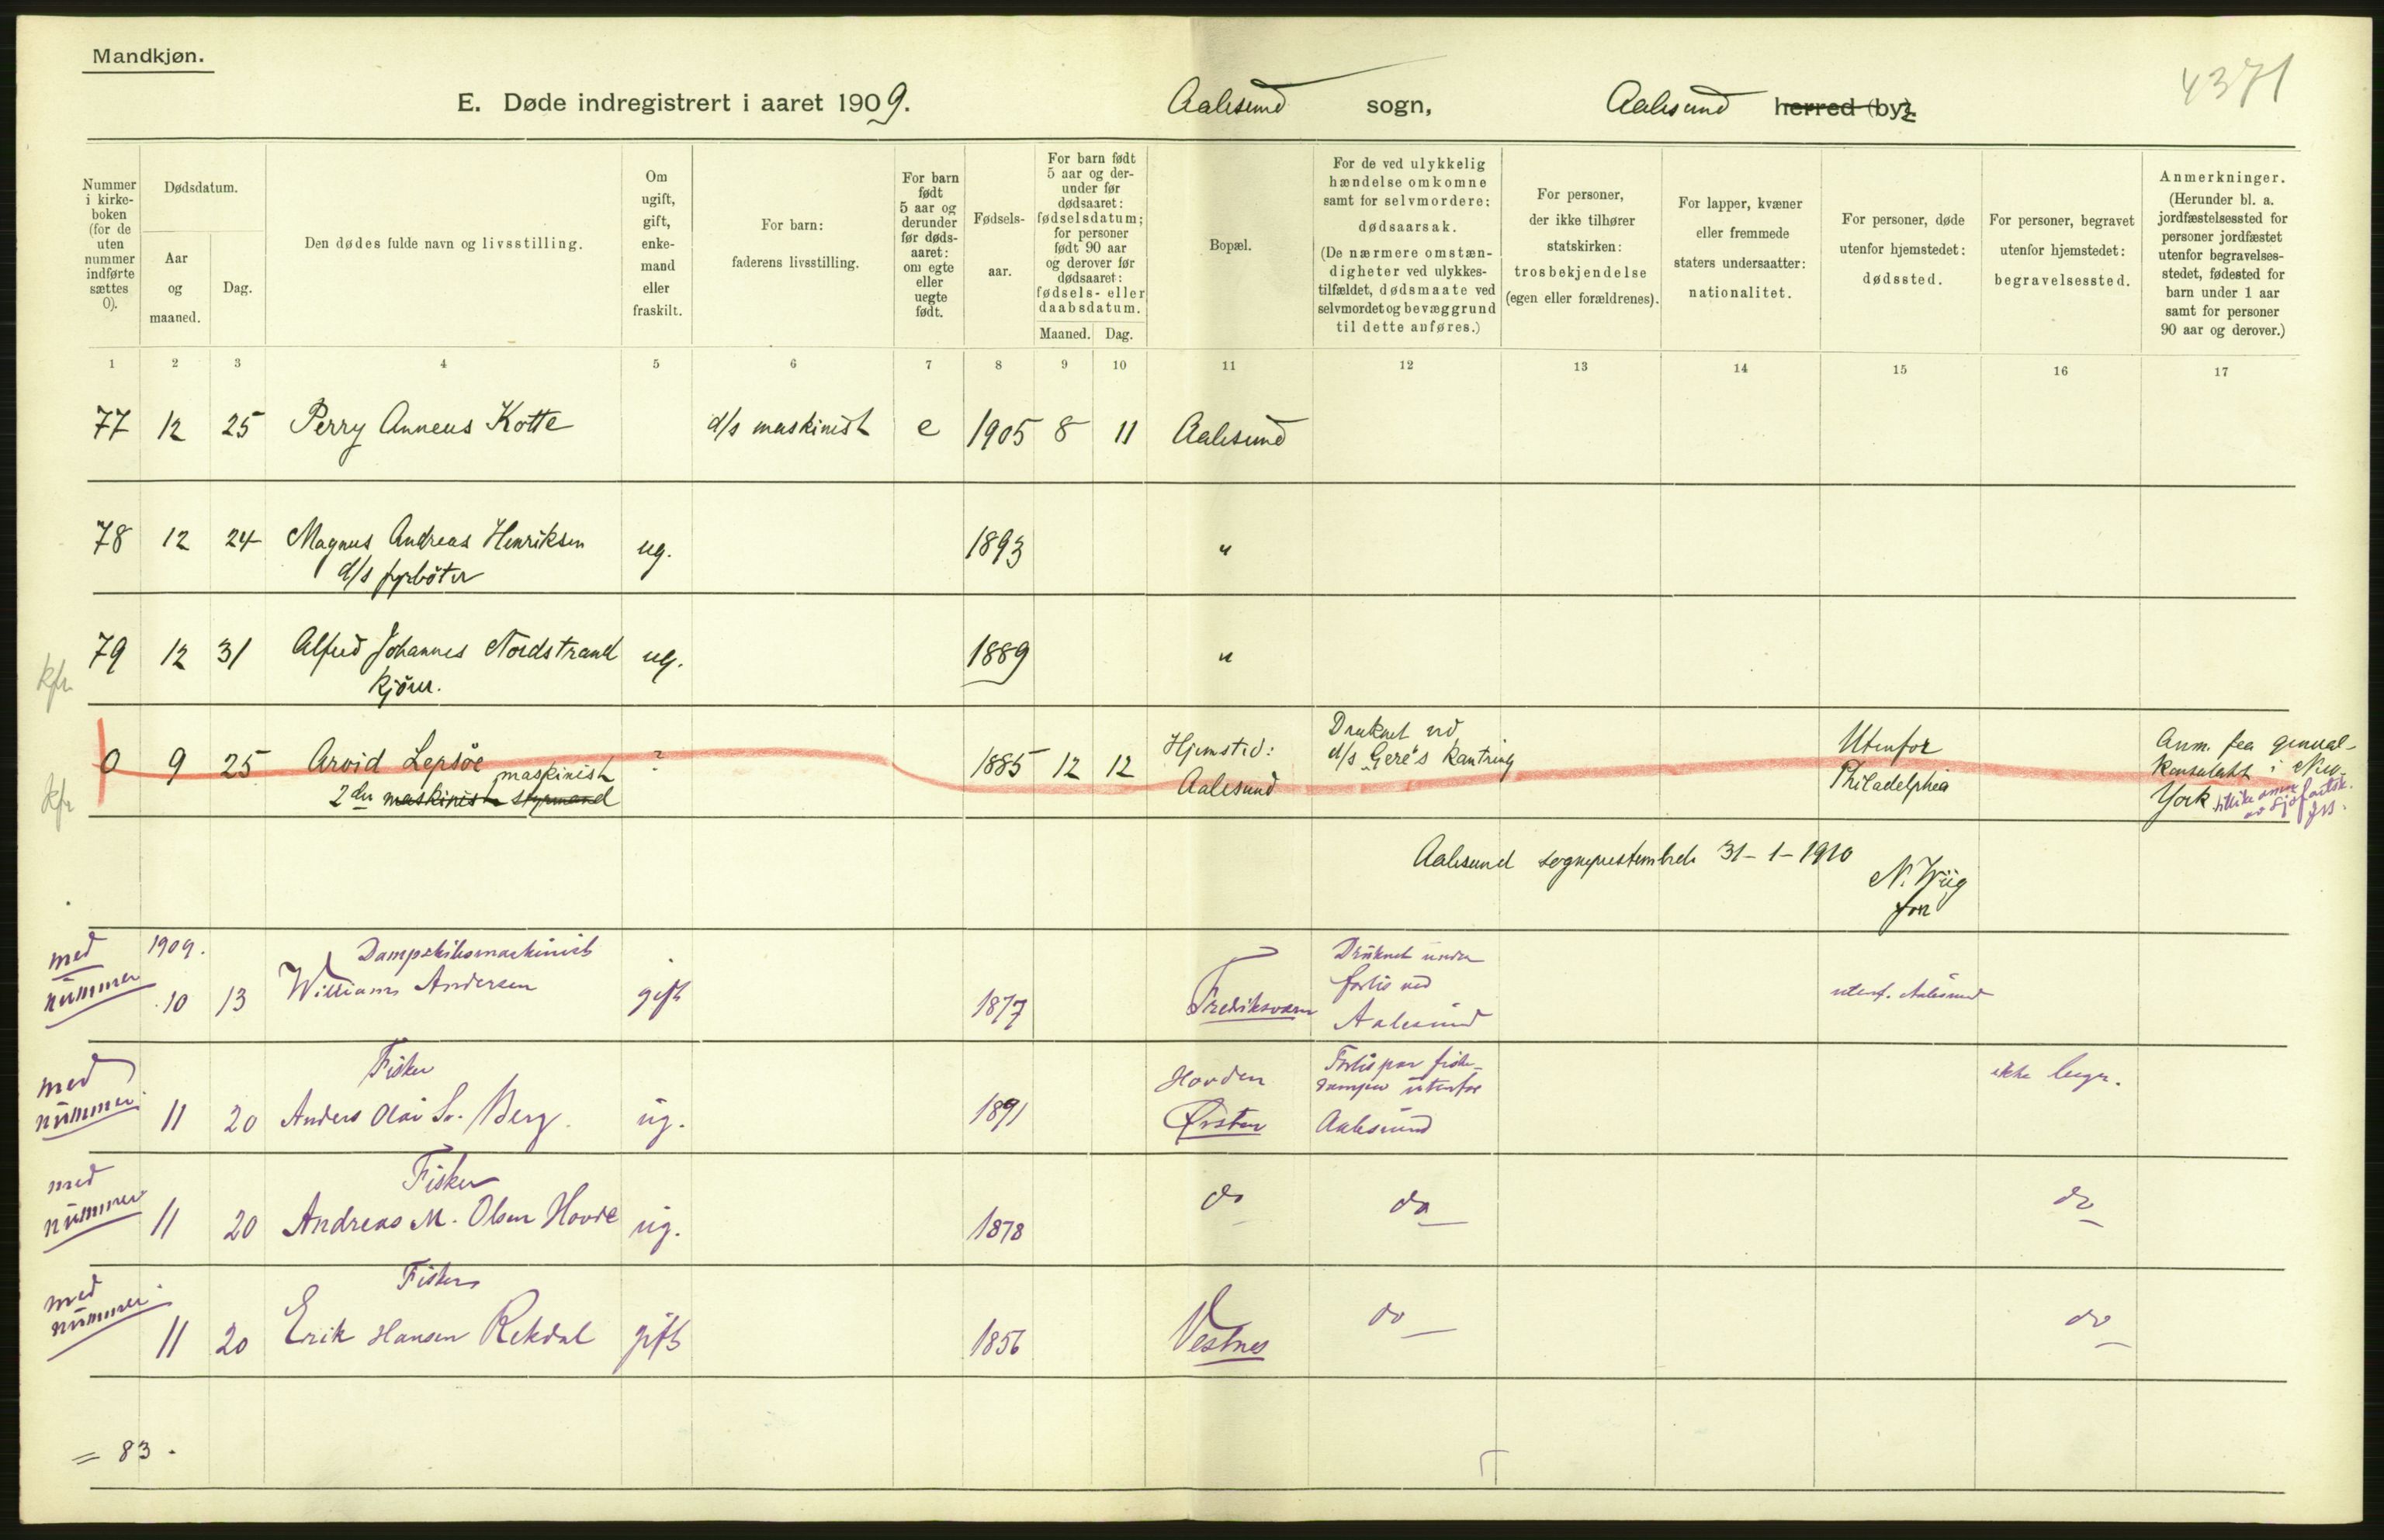 Mandkjøn.
4371
E. Døde indregistrert i aaret 1909. Aalesund sogn, Aalesund herred (by)
Nummer i kirke-boken (for de uten nummer indførte sættes 0).
Dødsdatum.
Aar og maaned.
Dag.
Den dødes fulde navn og livsstilling.
Om ugift, gift, enke-mand eller fraskilt.
For barn: faderens livsstilling.
For barn født 5 aar og derunder før døds-aaret: om egte eller uegte født.
Fødsels-aar.
For barn født 5 aar og der-under før dødsaaret: fødselsdatum; for personer født 90 aar og derover før dødsaaret: fødsels- eller daabsdatum.
Maaned. Dag.
Bopæl.
For de ved ulykkelig hændelse omkomne samt for selvmordere: dødsaarsak. (De nærmere omstæn-digheter ved ulykkes-tilfældet, dødsmaate ved selvmordet og bevæggrund til dette anføres.)
For personer, der ikke tilhører statskirken: trosbekjendelse (egen eller forældrenes).
For lapper, kvæner eller fremmede staters undersaatter: nationalitet.
For personer, døde utenfor hjemstedet: dødssted.
For personer, begravet utenfor hjemstedet: begravelsessted.
Anmerkninger. (Herunder bl. a. jordfæstelsessted for personer jordfæstet utenfor begravelses-stedet, fødested for barn under 1 aar samt for personer 90 aar og derover.)
1 2 3 4 5 6 7 8 9 10 11 12 13 14 15 16 17
77 12 25 Perry Anneus Kotte d/s maskinist e 1905 8 11 Aalesund
78 12 24 Magnus Andreas Henriksen ug. 1893 "
d/s fyrbøter
kfr.
79 12 31 Alfred Johannes Nordstrand ug. 1889 "
kjører.
kfr
0 9 25 Arvid Lepsöe ? 1885 12 12 Hjemsted: Aalesund
2den maskinist styrmand maskinist
Druknet ved
d/s "Gere"s kantring
Utenfor
Philadelphia
Anm. fra general-
konsulatet i New-
York
tillike anm.
av Sjöfartsk.
Aalesund sogneprestembede 31-1-1910
N. Wiig
fon
med nummer
1909. Dampskibsmaskinist
10 13 William Andersen gift 1877 Fredriksværn
Druknet under
forlis ved
Aalesund
utenf. Aalesund
med nummer
Fisker
11 20 Anders Olai S. Berg. ug. 1891 Hovden
Ørsten
Forlis paa fiske-
dampen utenfor
Aalesund
ikke begr.
med nummer
Fisker
11 20 Andreas M. Olsen Hovde ug. 1878 do do do
med nummer
Fisker
11 20 Erik Hansen Rekdal gift 1856 Vestnes do do
= 83.